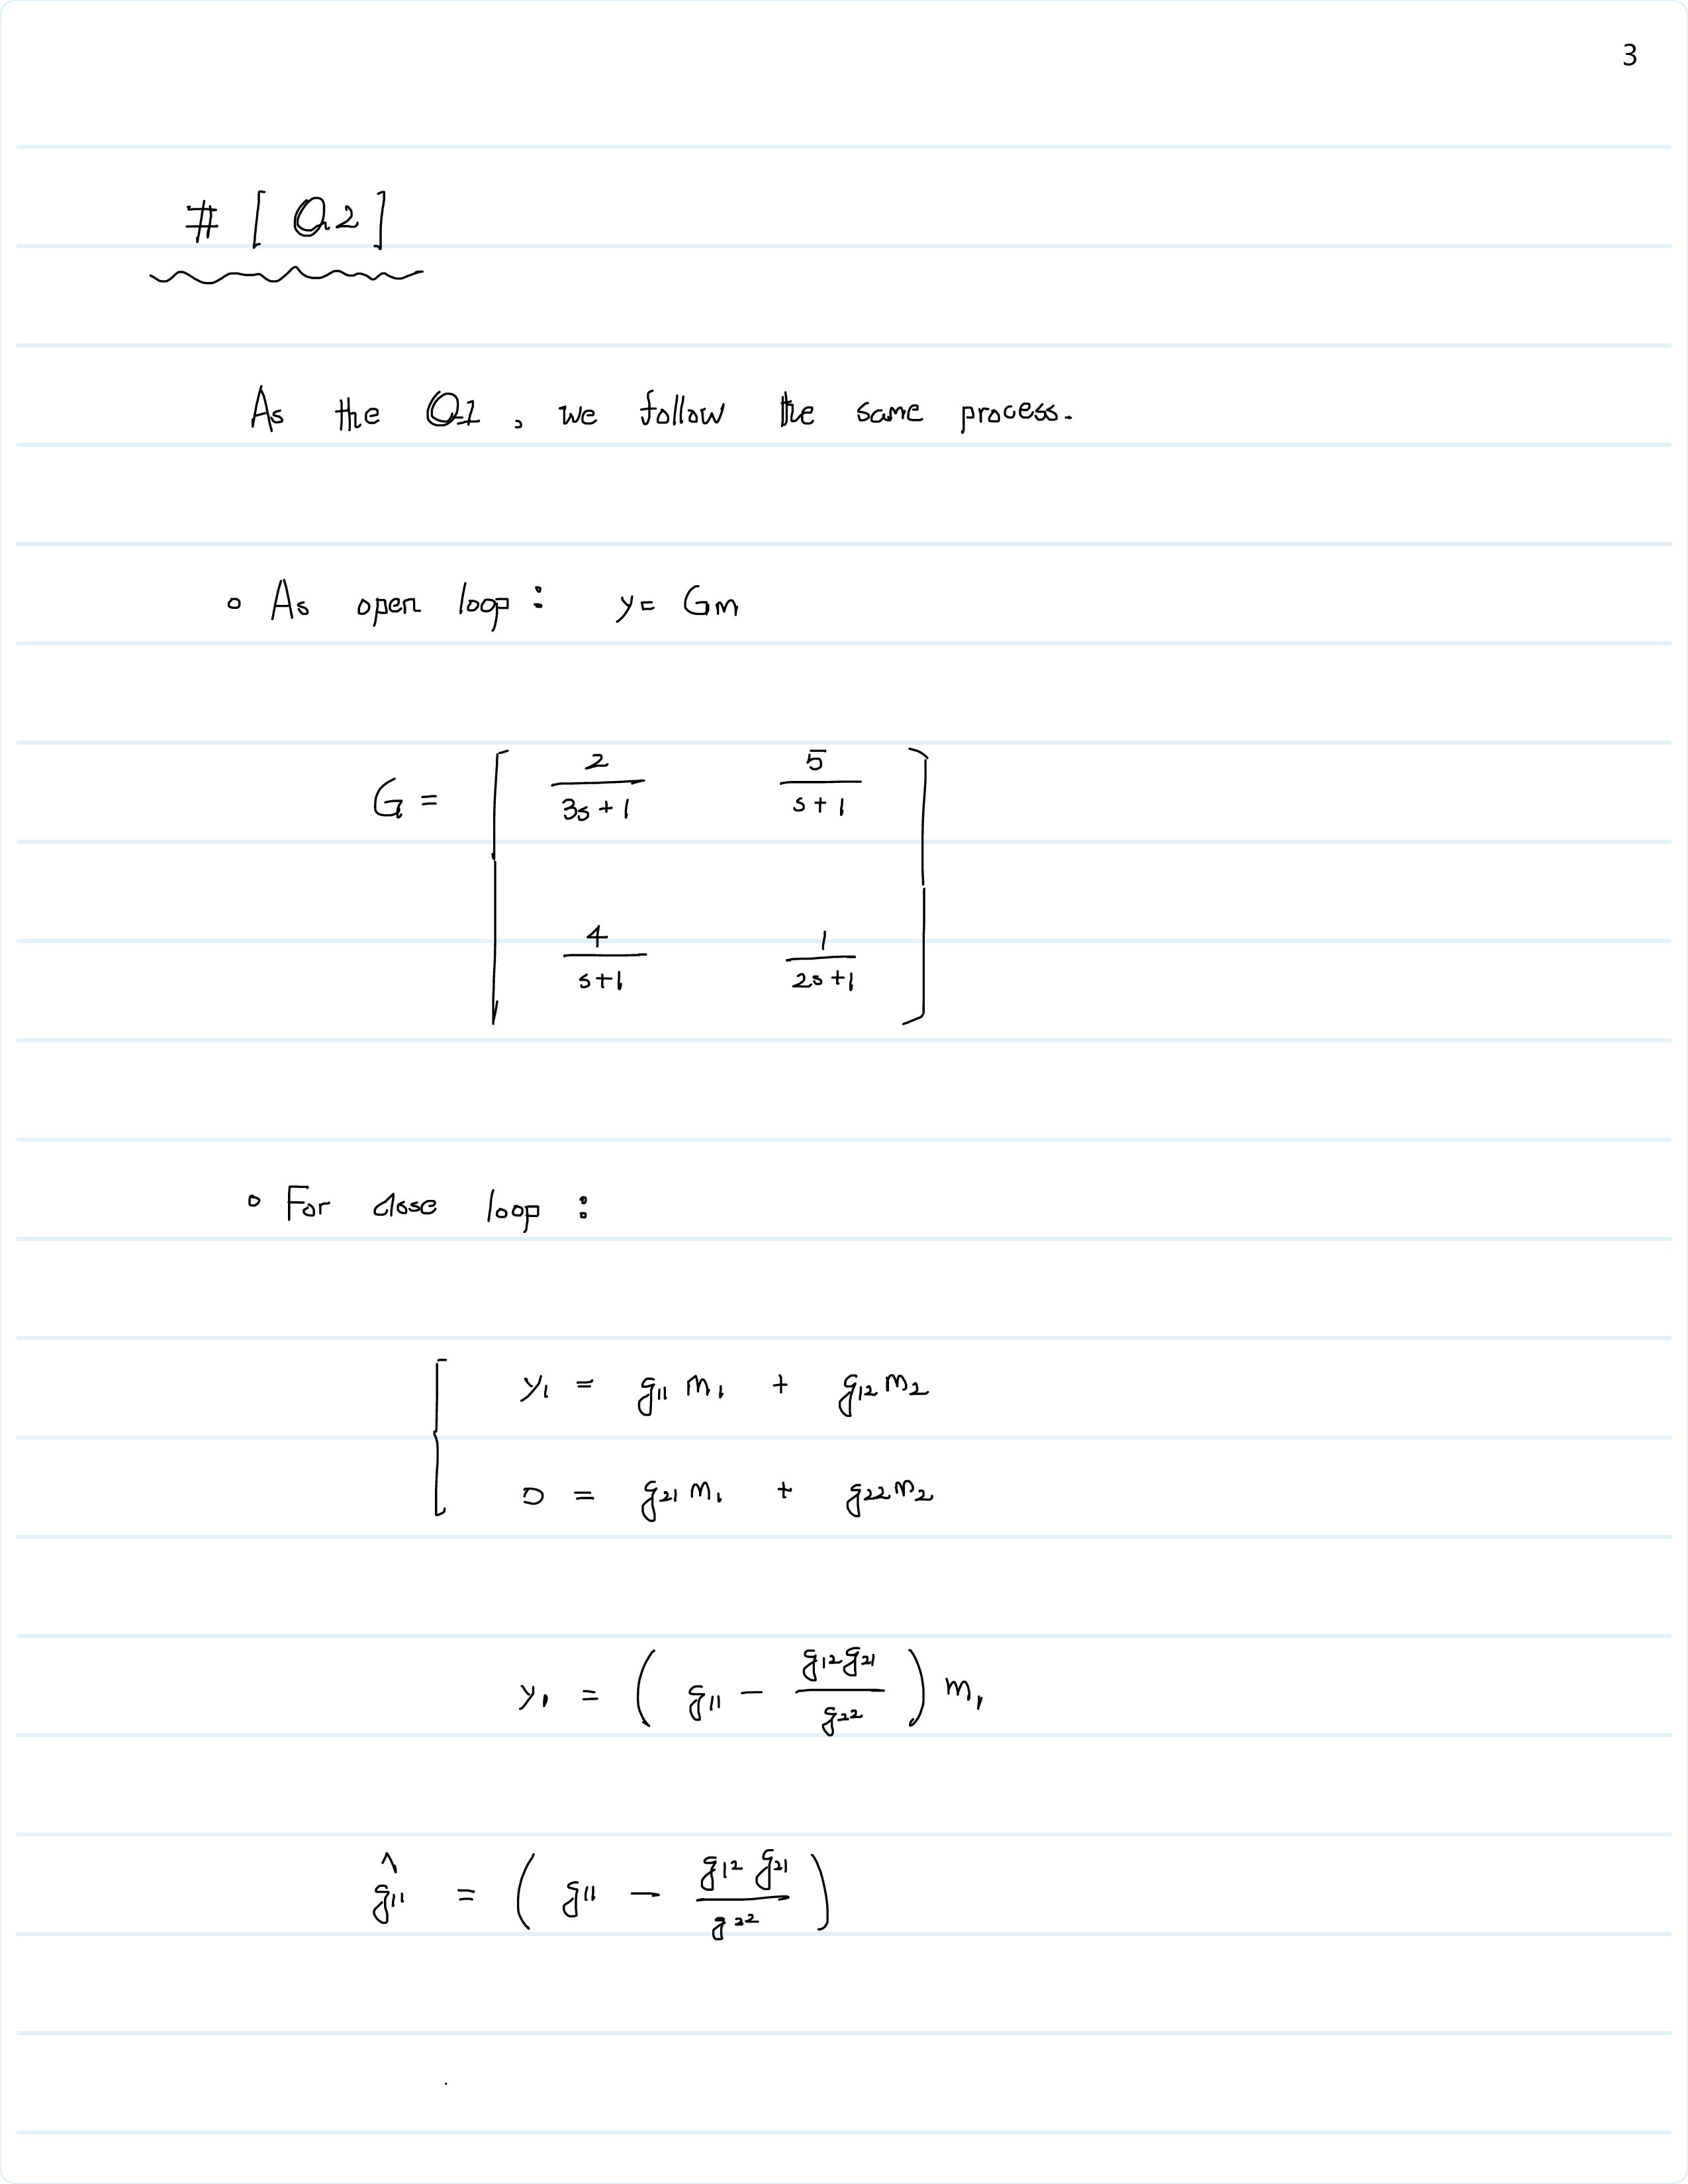 3
# [ Q2 ]
As the Q1, we follow the same process.
∘ As open loop : y = Gm
G = [ 2/(3s+1) 5/(s+1)
4/(s+1) 1/(2s+1) ]
∘ For close loop :
y₁ = g₁₁ m₁ + g₁₂ m₂
0 = g₂₁ m₁ + g₂₂ m₂
y₁ = ( g₁₁ − g₁₂g₂₁/g₂₂ ) m₁
ĝ₁₁ = ( g₁₁ − g₁₂ g₂₁/g₂₂ )